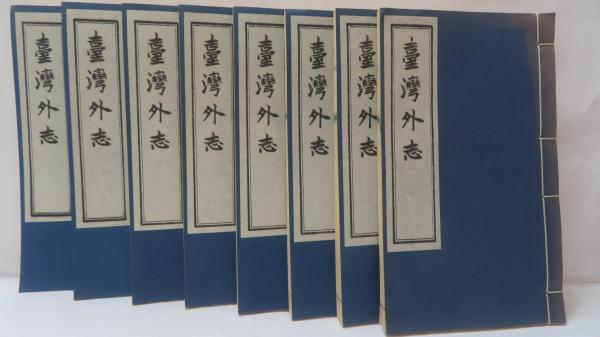 臺灣外志
臺灣外志
臺灣外志
臺灣外志
臺灣外志
臺灣外志
臺灣外志
臺灣外志